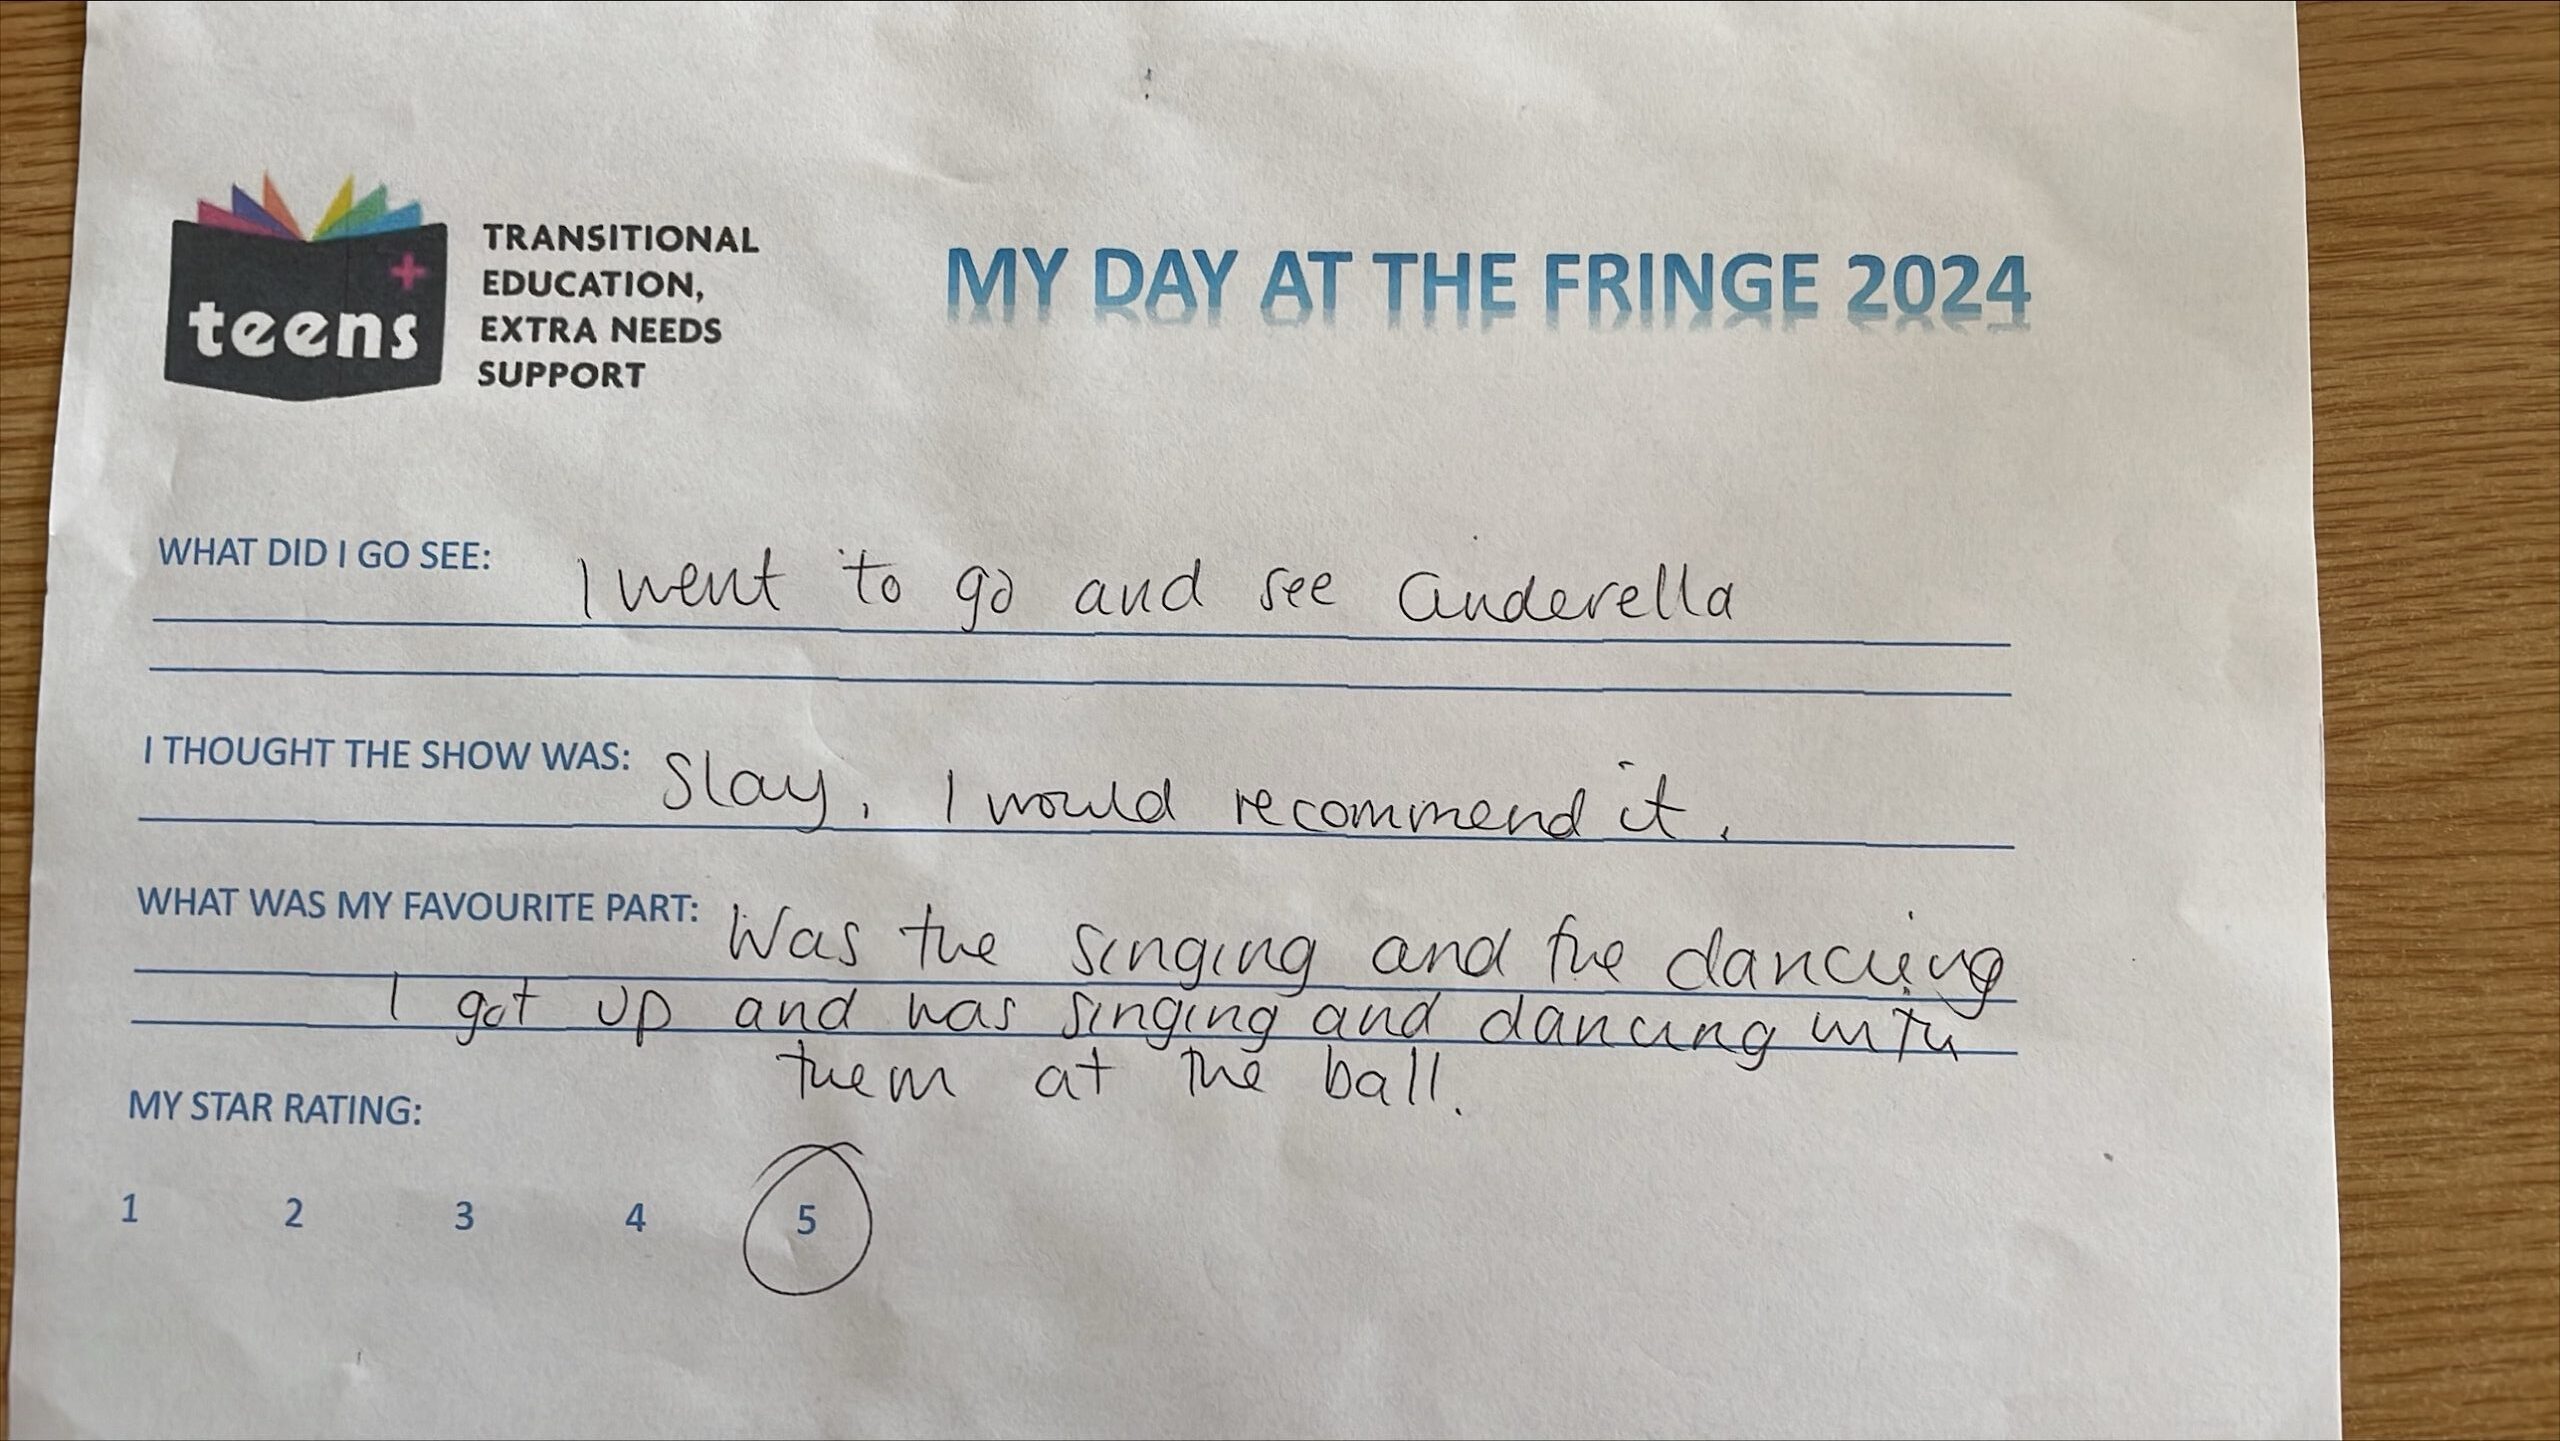 teens+
TRANSITIONAL
EDUCATION,
EXTRA NEEDS
SUPPORT
MY DAY AT THE FRINGE 2024
WHAT DID I GO SEE: I went to go and see Cinderella
I THOUGHT THE SHOW WAS: Slay. I would recommend it.
WHAT WAS MY FAVOURITE PART: Was the singing and the dancing
I got up and was singing and dancing with
them at the ball.
MY STAR RATING:
1 2 3 4 5